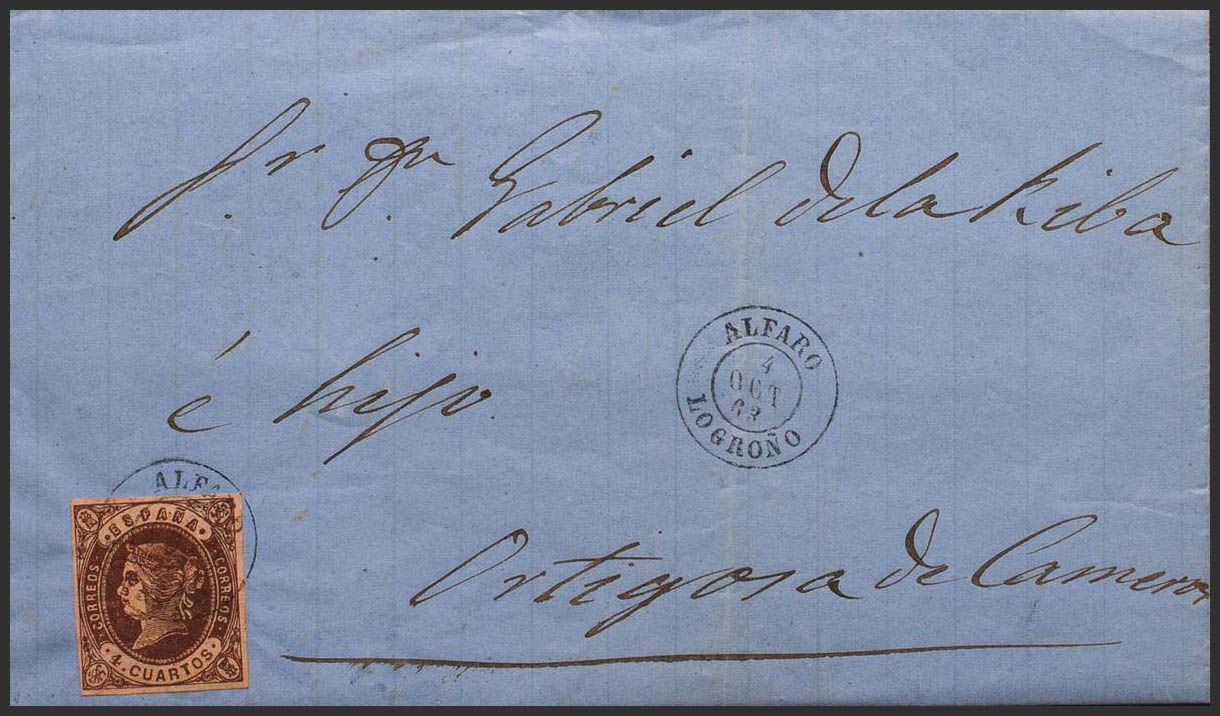 Sr. Dn. Gabriel de la Riba
é hijo.
ALFARO
4
OCT
63
LOGROÑO
ALFA
ESPAÑA
CORREOS
CORREOS
4 CUARTOS
Ortigosa de Cameros